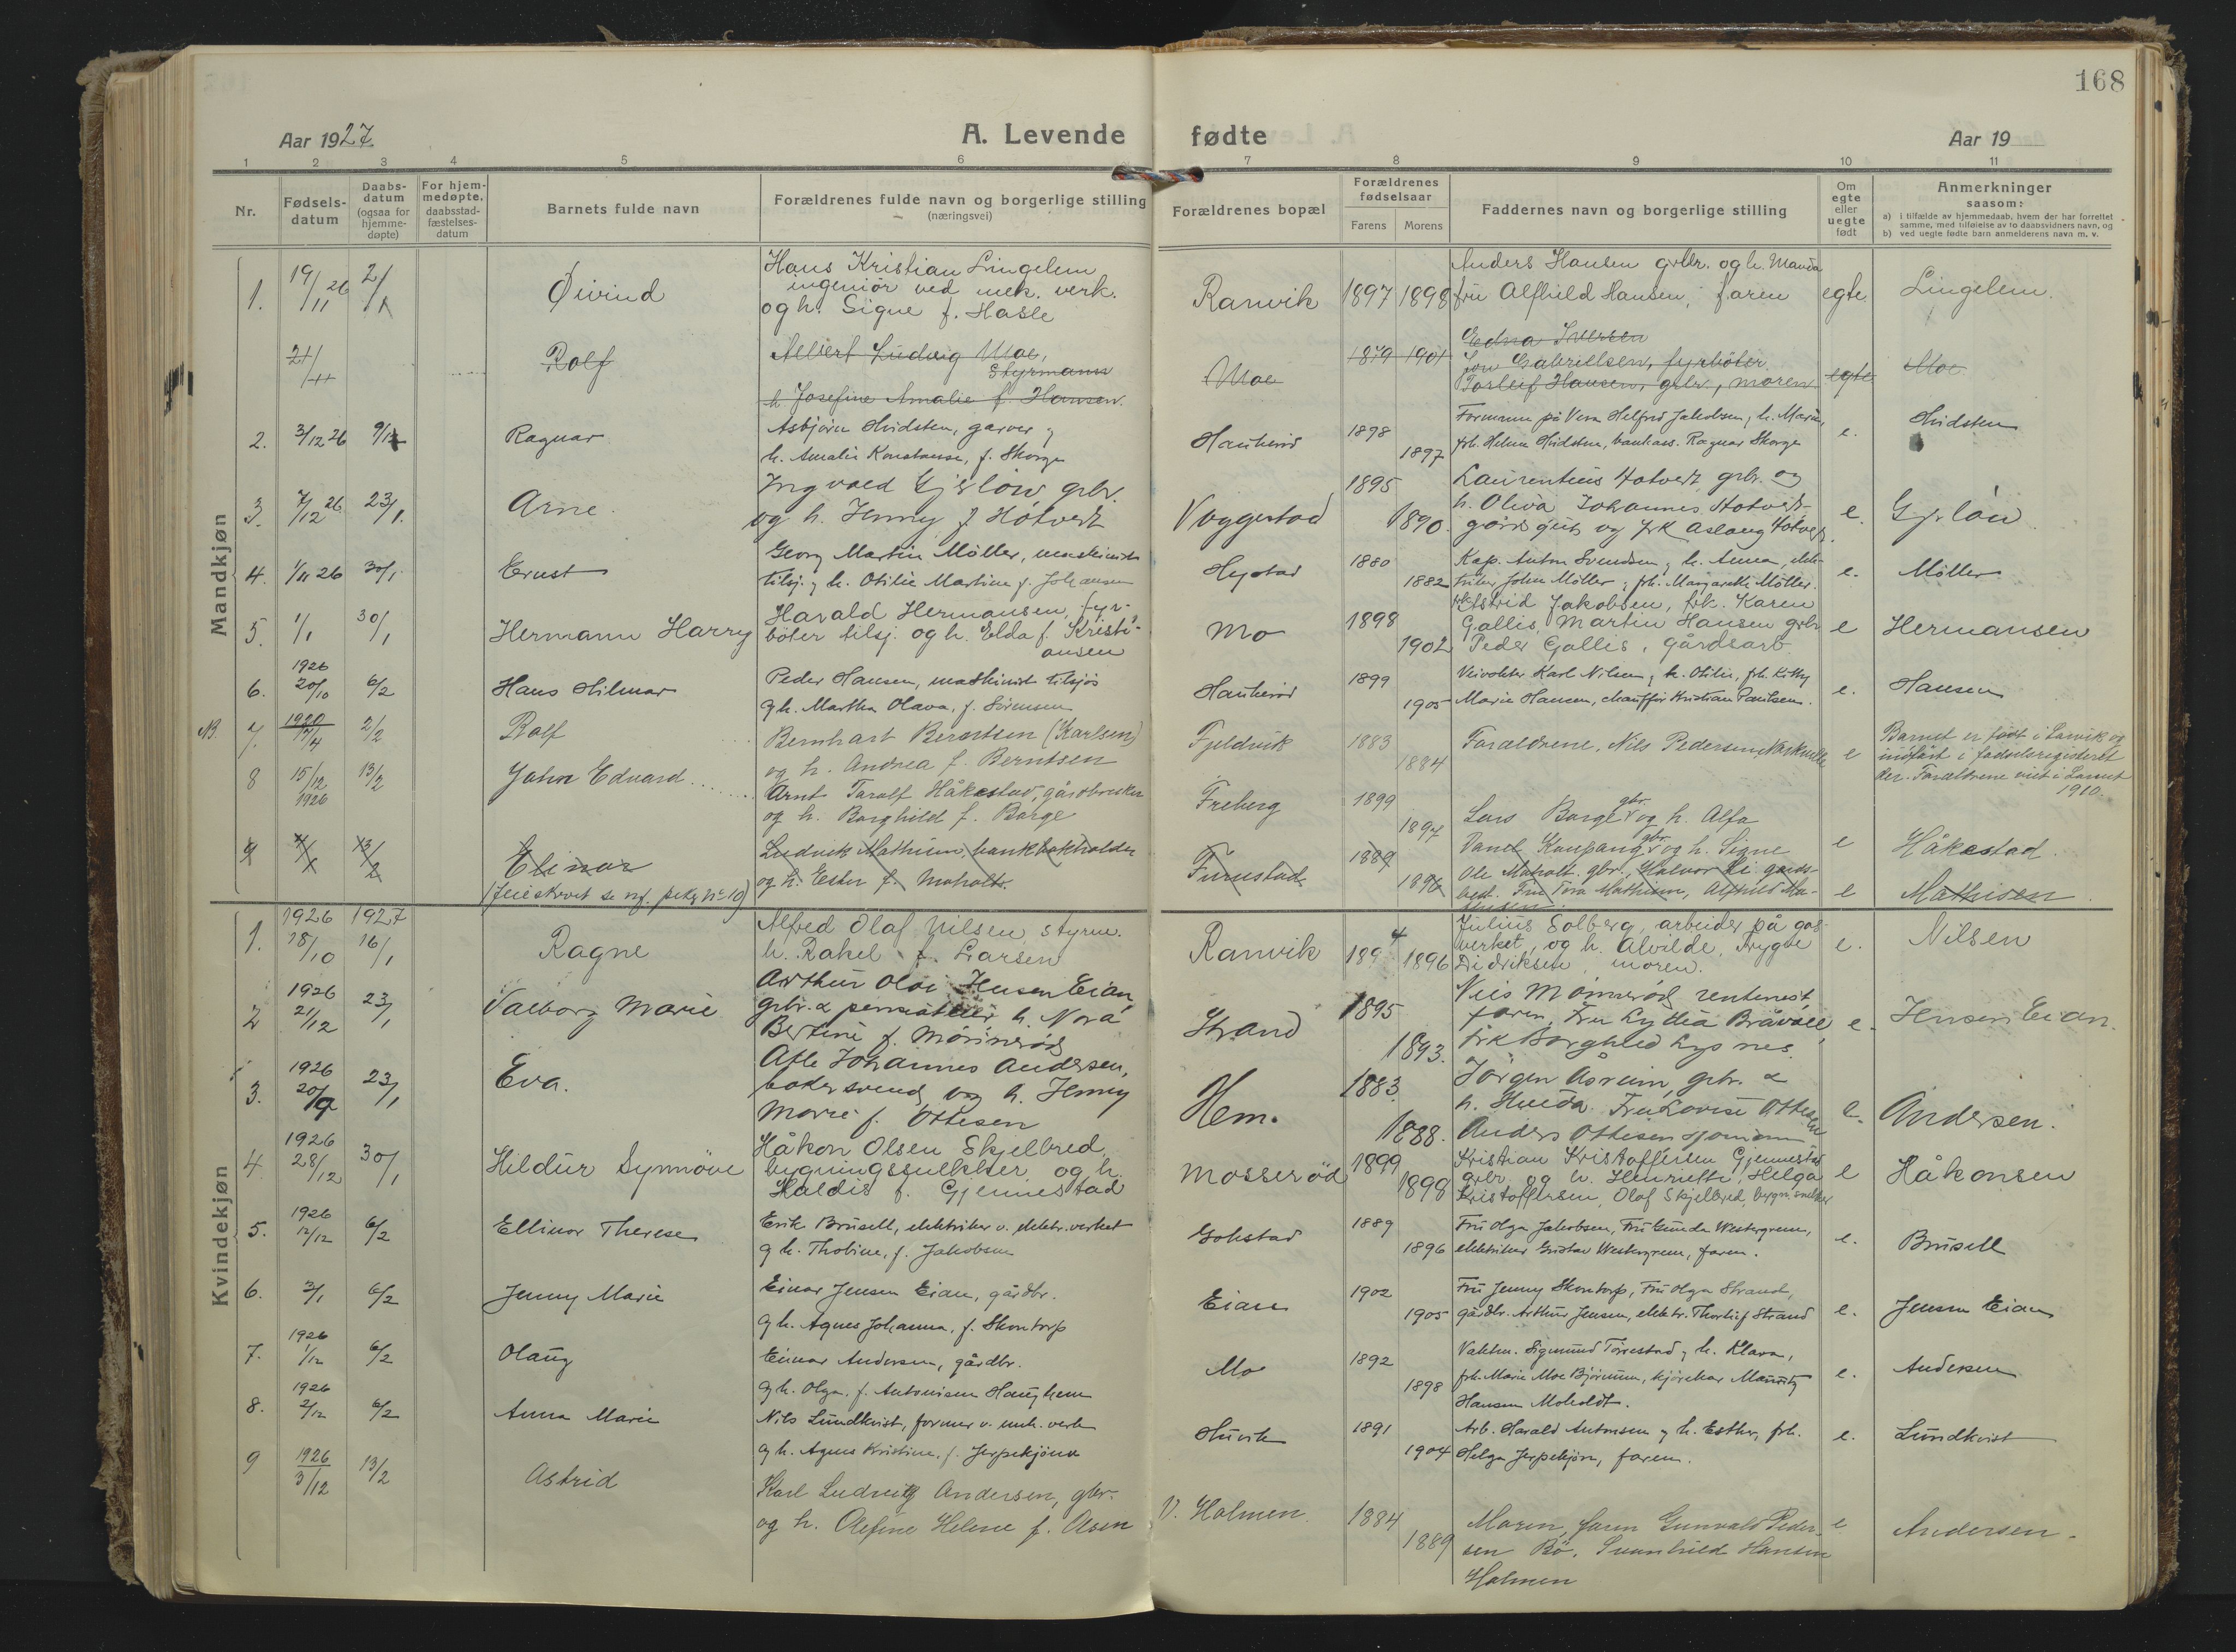 168
Aar 1927
A. Levende
fødte
Aar 19
1 2 3 4 5 6 7 8 9 10 11
Nr.
Fødsels-
datum
Daabs-
datum
(ogsaa for
hjemme-
døpte)
For hjem-
medøpte,
daabsstad-
fæstelses-
datum
Barnets fulde navn
Forældrenes fulde navn og borgerlige stilling
(næringsvei)
Forældrenes bopæl
Forældrenes
fødselsaar
Farens Morens
Faddernes navn og borgerlige stilling
Om
egte
eller
uegte
født
Anmerkninger
saasom:
a) i tilfælde av hjemmedaab, hvem der har forrettet
samme, med tilføielse av to daabsvidners navn, og
b) ved uegte fødte barn anmelderens navn m. v.
Mandkjøn
1. 19/11 26 2/1 Øivind
Hans Kristian Lingelem
ingeniør ved mek. verk.
og h. Signe f. Hasle
Ranvik 1897 1898
Anders Hansen grbr. og h. Maria
fru Alfhild Hansen, faren
egte. Lingelem.
21/11 Rolf
Albert Ludvig Moe,
Styrmann
h Josefine Amalie f. Hansen.
Moe 1879 1901
Edna Iversen
Jon Gabrielsen, fyrbøter
Torleif Hansen, grbr, moren
egte Moe
2. 3/12 26 Ragnar
Asbjørn Hvidsten, garver og
h. Amalie Konstanse, f. Skorge
Haukerød 1898 1897
Formann på Vera Helfred Jakobsen, h. Marie,
frk. Helene Hvidsten, bankass. Ragnar Skorge
e. Hvidsten
3. 7/12 26 23/1. Arne.
Ingvald Gjerløw grbr.
og h. Jenny f. Hotvedt
Voggestad 1895 1890.
Laurentius Hotvedt grbr. og
h. Oliva Johannes Hotvedt
gårdsgut og frk Aslaug Hotvedt.
e. Gjerløw
4. 1/11 26 30/1. Ernst
Georg Martin Møller, maskinist
tilsj. og h. Otilie Martine f. Johansen
Hystad 1880 1882
Kap. Anton Svendsen og h. Anna, elek-
triker John Møller, frk. Margarethe Møller.
e. Møller
5. 1/1 30/1 Hermann Harry
Harald Hermansen, fyr-
bøter tilsj. og h. Elda f. Kristi-
ansen
Mo 1898 1902
frk Astrid Jakobsen, frk. Karen
Gallis, Martin Hansen grbr
Peder Gallis, gårdsarb.
e Hermansen
6. 1926 20/10 6/2 Hans Hilmar
Peder Hansen, maskinist tilsjøs
og h. Martha Olava, f. Sørensen
Haukerød 1899 1905
Veivokter Karl Nilsen og h. Otilie, frk. Kitty
Marie Hansen, chauffør Kristian Paulsen.
e. Hansen
NB. 7. 1920 17/4 2/2 Rolf
Bernhart Berntsen (Karlsen)
og h. Andrea f. Berntsen
Fjeldvik 1883 1884
Forældrene, Nils Pedersen
e
Barnet er født i Larvik og
indført i fødselsregisteret
der. Forældrene viet i Larvik
1910.
8 15/12 1926 13/2 John Edvard
Arnt Toralf Håkestad, gårdbruker
og h. Borghild f. Barge
Freberg 1899 1897
Lars Barge gbr. og h. Alfa
Pauel Kaupang gbr. og h. Signe
e Håkestad.
9 13/2 Elinar
(feilskrevet se nf. pikeg nº 10)
Ludvik Mathisen, bankbokholder
og h. Ester f. Moholt.
Furustad 1889 1896
Ole Moholt gbr., Halvor Li gårds-
best. Fru Tora Mathisen, Alfhild Ma-
thisen.
e Mathisen.
Kvindekjøn
1. 1926 18/10 1927 16/1 Ragne
Alfred Olaf Nilsen styrm.
h. Rakel f. Larsen
Ranvik 1894 1896
Julius Solberg, arbeider på gas-
verket, og h. Alvilde, Trygve
Didriksen, moren.
e. Nilsen
2 1926 21/12 23/1 Valborg Marie
Arthur Olai Jensen Eian,
grbr. & h. Nora
Bertine f. Mønnerød
Strand 1895 1893.
Nils Mønnerød rentenist,
faren, Fru Lydia Bråvoll,
frk Borghild Lysnes.
e. Jensen Eian.
3. 1926 20/9 23/1 Eva.
Atle Johannes Andersen,
bakersvend, og h. Jenny
Marie f. Ottesen
Hem. 1883. 1888.
Jørgen Åsrum, grbr. &
h. Hulda. Fru Lovise Ottesen
Anders Ottesen sjømann
e. Andersen.
4. 1926 28/12 30/1 Hildur Synnøve
Håkon Olsen Skjelbred
bygningssnekker og h.
Haldis f. Gjennestad
Mosserød 1899 1898
Kristian Kristoffersen Gjennestad
grbr og h. Henriette, Helga
Kristoffersen, Olaf Skjelbred, bygn. snekker
e Håkonsen
5. 1926 12/12 6/2 Ellinor Therese
Erik Brusell, elektriker v. elektr.verket
og h. Thobine, f. Jakobsen
Gokstad 1889 1896
Fru Olga Jakobsen, Fru Gunda Westergreen,
elektriker Gustav Westergreen, faren.
e. Brusell
6. 3/1 6/2 Jenny Marie
Einar Jensen Eian, gårdbr.
og h. Agnes Johanna, f. Skontorp
Eian 1902 1905
Fru Jenny Skontorp, Fru Olga Strand,
gårdbr. Arthur Jensen, elektr. Thorleif Strand
e. Jensen Eian
7. 1926 1/12 6/2 Olaug
Einar Andersen, gårdbr.
og h. Olga, f. Antonisen Haughem
Mo 1892 1898
Vaktm. Sigmund Torrestad og h. Klara,
frk. Marie Moe Bjørnum, kjørekar Mauritz
Hansen Moholdt.
e. Andersen
8. 1926 2/12 6/2 Anna Marie
Nils Lundkvist, former v. mek. verk
og h. Agnes Kristine, f. Jerpekjønn
Huvik 1891 1904
Arb. Harald Antonsen og h. Esther, frk.
Helga Jerpekjøn, faren.
e. Lundkvist
9 1926 3/12 13/2 Astrid
Karl Ludvig Andersen, gbr.
og h. Olefine Helene f. Olsen
V. Holmen. 1884 1889
Moren, faren Gunvald Peder-
sen Bø, Svanhild Hansen
Holmen
e Andersen.